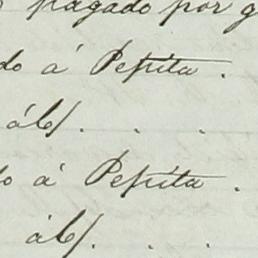 pagado por g
do á Pepita.
á 6/. . .
do á Pepita.
á 6/. . .